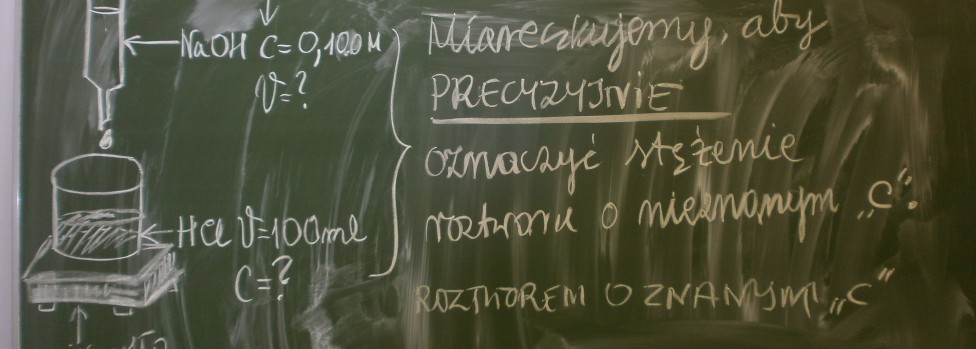 NaOH C=0,100M
V=?
HCl V=100ml
C=?
Miareczkujemy, aby
PRECYZYJNIE
oznaczyć stężenie
roztworu o nieznanym „C".
ROZTWOREM O ZNANYM „C"